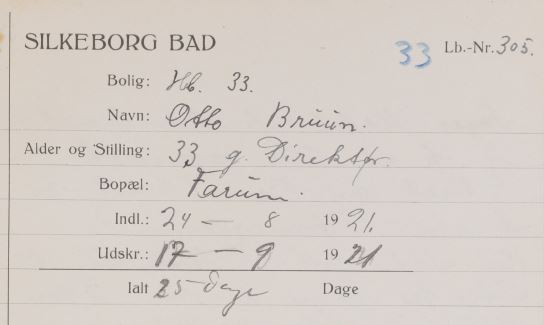 SILKEBORG BAD 33 Lb.-Nr. 305.
Bolig: Hb. 33.
Navn: Otto Bruun.
Alder og Stilling: 33 g. Direktør.
Bopæl: Farum.
Indl.: 24 — 8 1921.
Udskr.: 17 — 9 1921
Ialt 25 Dage Dage